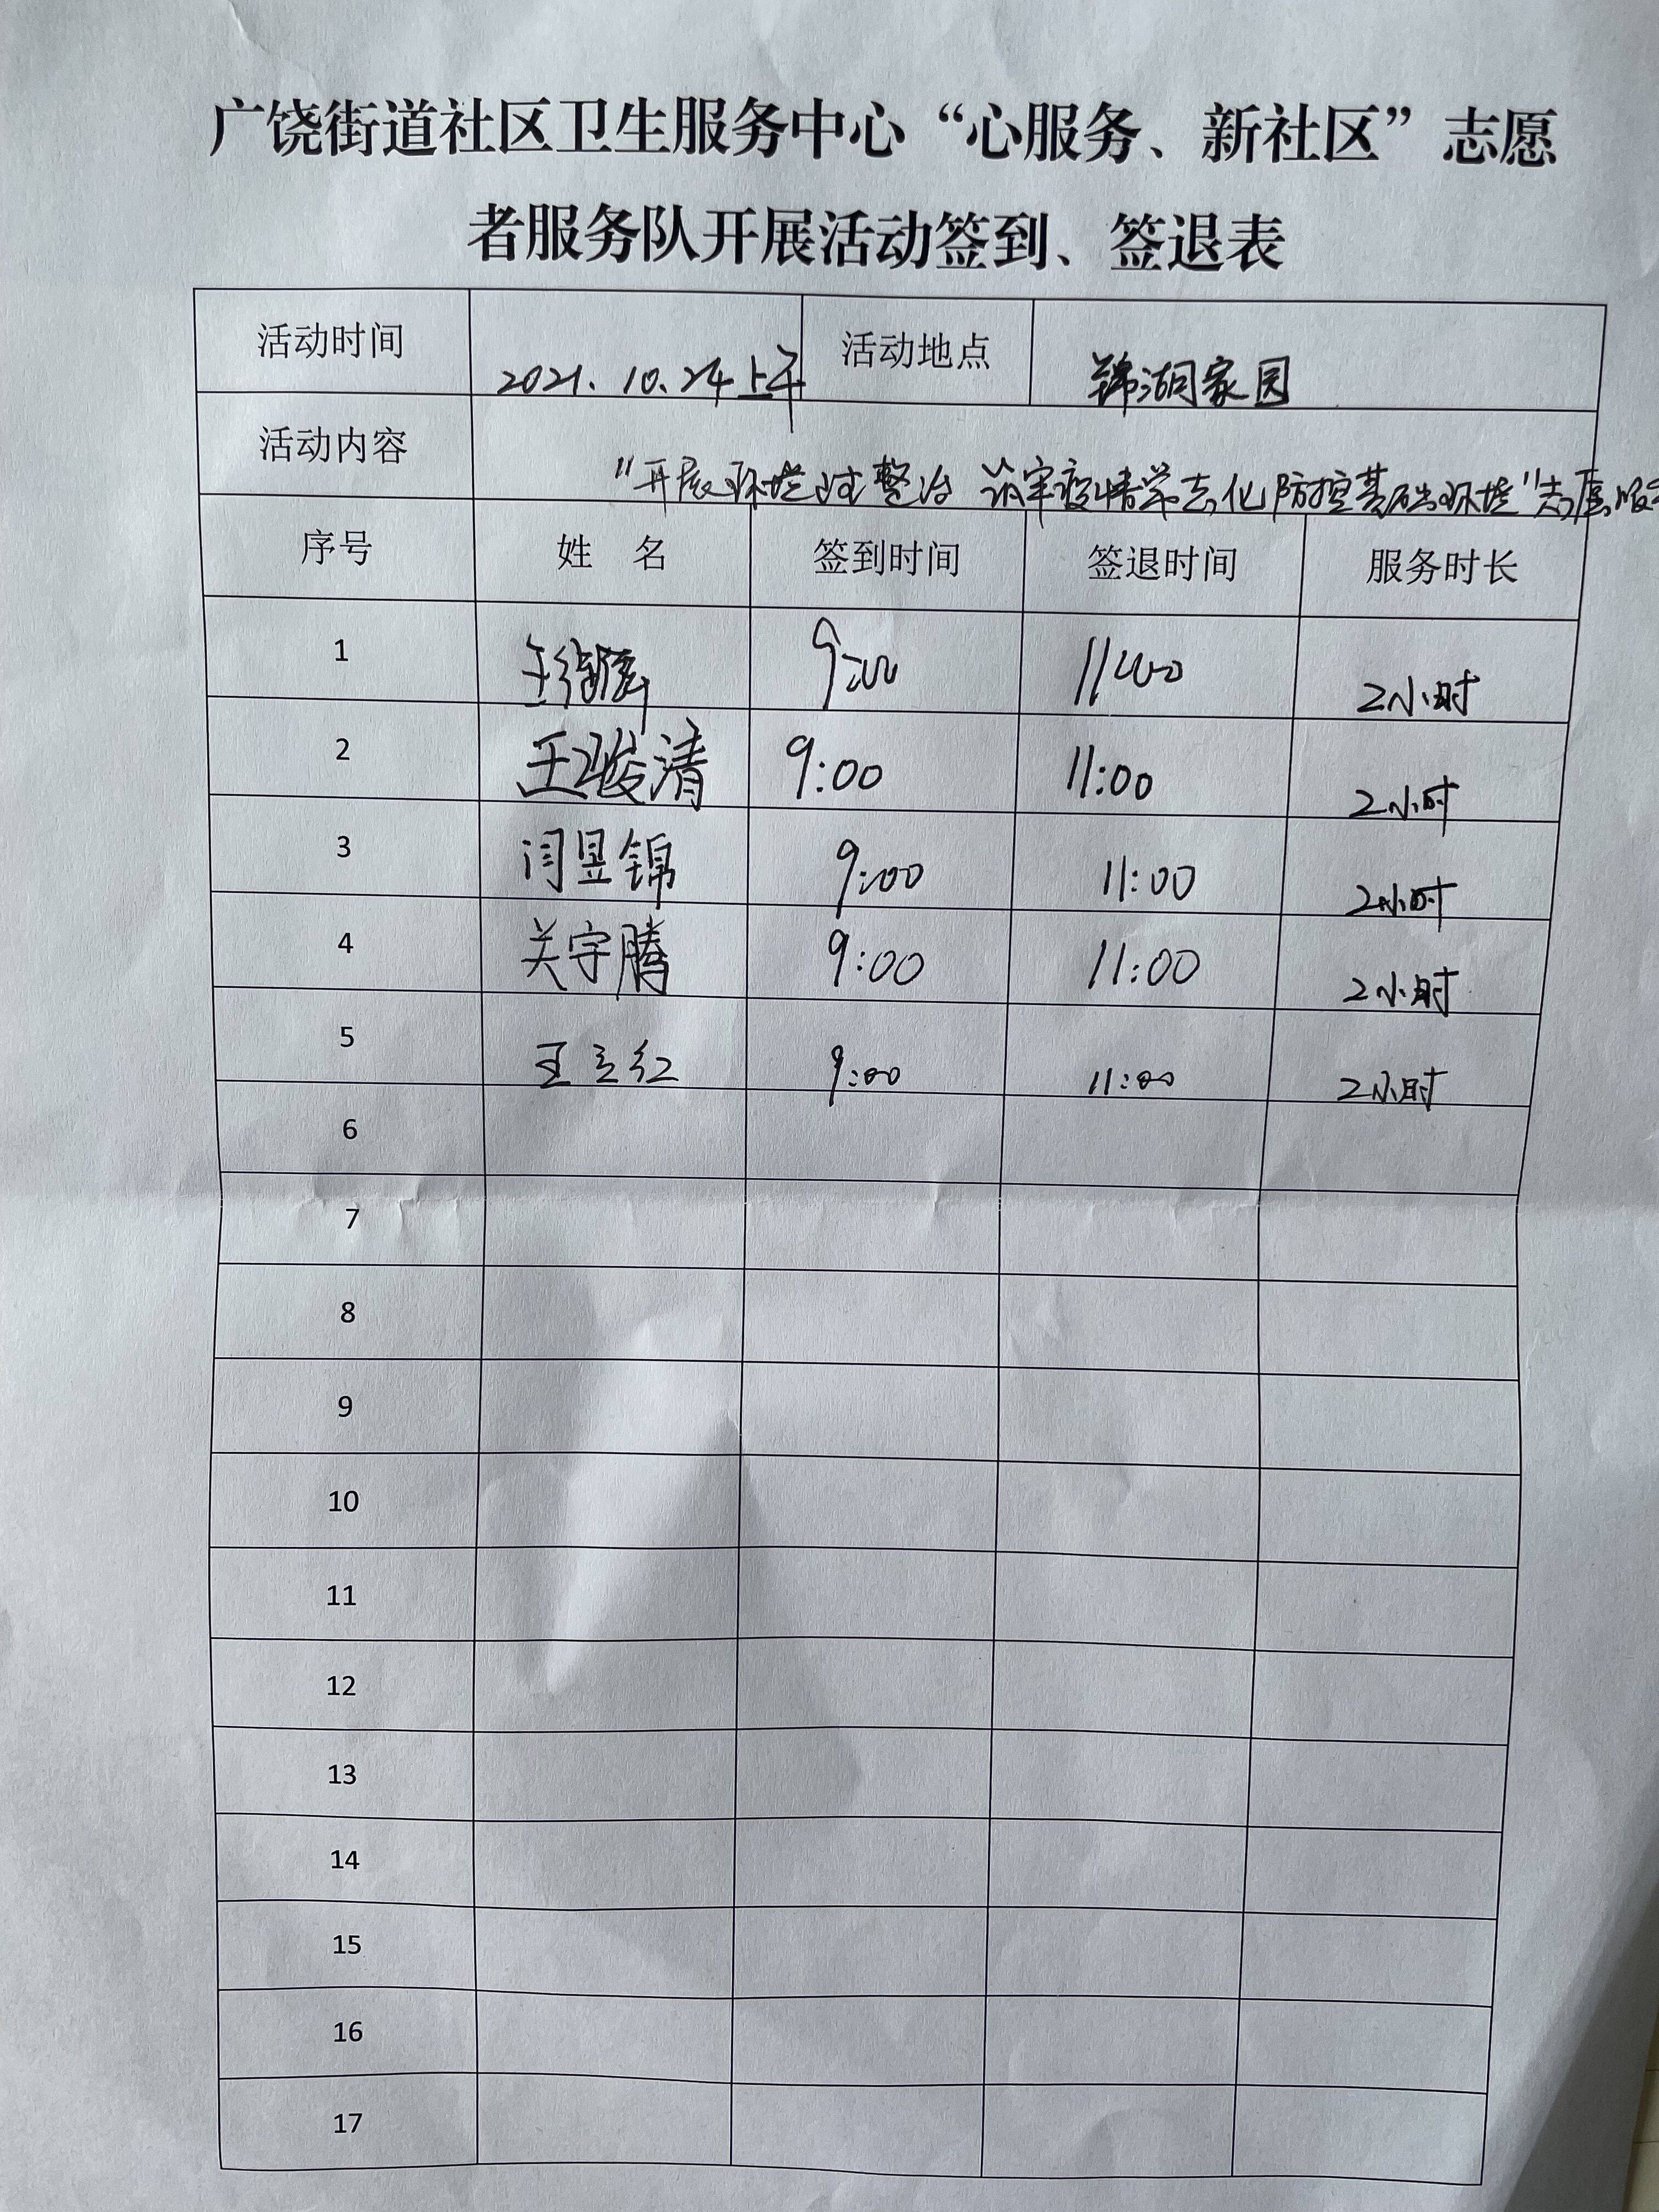 广饶街道社区卫生服务中心“心服务、新社区”志愿
者服务队开展活动签到、签退表
活动时间 2021.10.24上午 活动地点 锦湖家园
活动内容 “开展环境 整治 筑牢疫情常态化防控基础环境”志愿服
序号 姓 名 签到时间 签退时间 服务时长
1 王 9:00 11:00 2小时
2 王骏清 9:00 11:00 2小时
3 闫昱锦 9:00 11:00 2小时
4 关宇腾 9:00 11:00 2小时
5 王立红 9:00 11:00 2小时
6
7
8
9
10
11
12
13
14
15
16
17